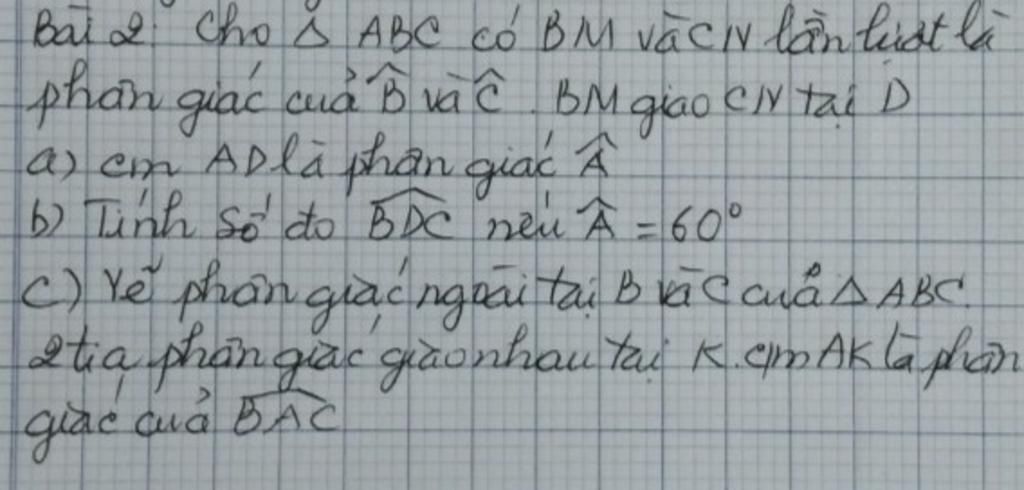 Bài 2: Cho Δ ABC có BM và CN lần lượt là
phân giác của B̂ và Ĉ. BM giao CN tại D
a) cm AD là phân giác Â
b) Tính số đo \widehat{BDC} nếu Â = 60°
c) Vẽ phân giác ngoài tại B và C của Δ ABC.
2 tia phân giác giao nhau tại K. cm AK là phân
giác của \widehat{BAC}